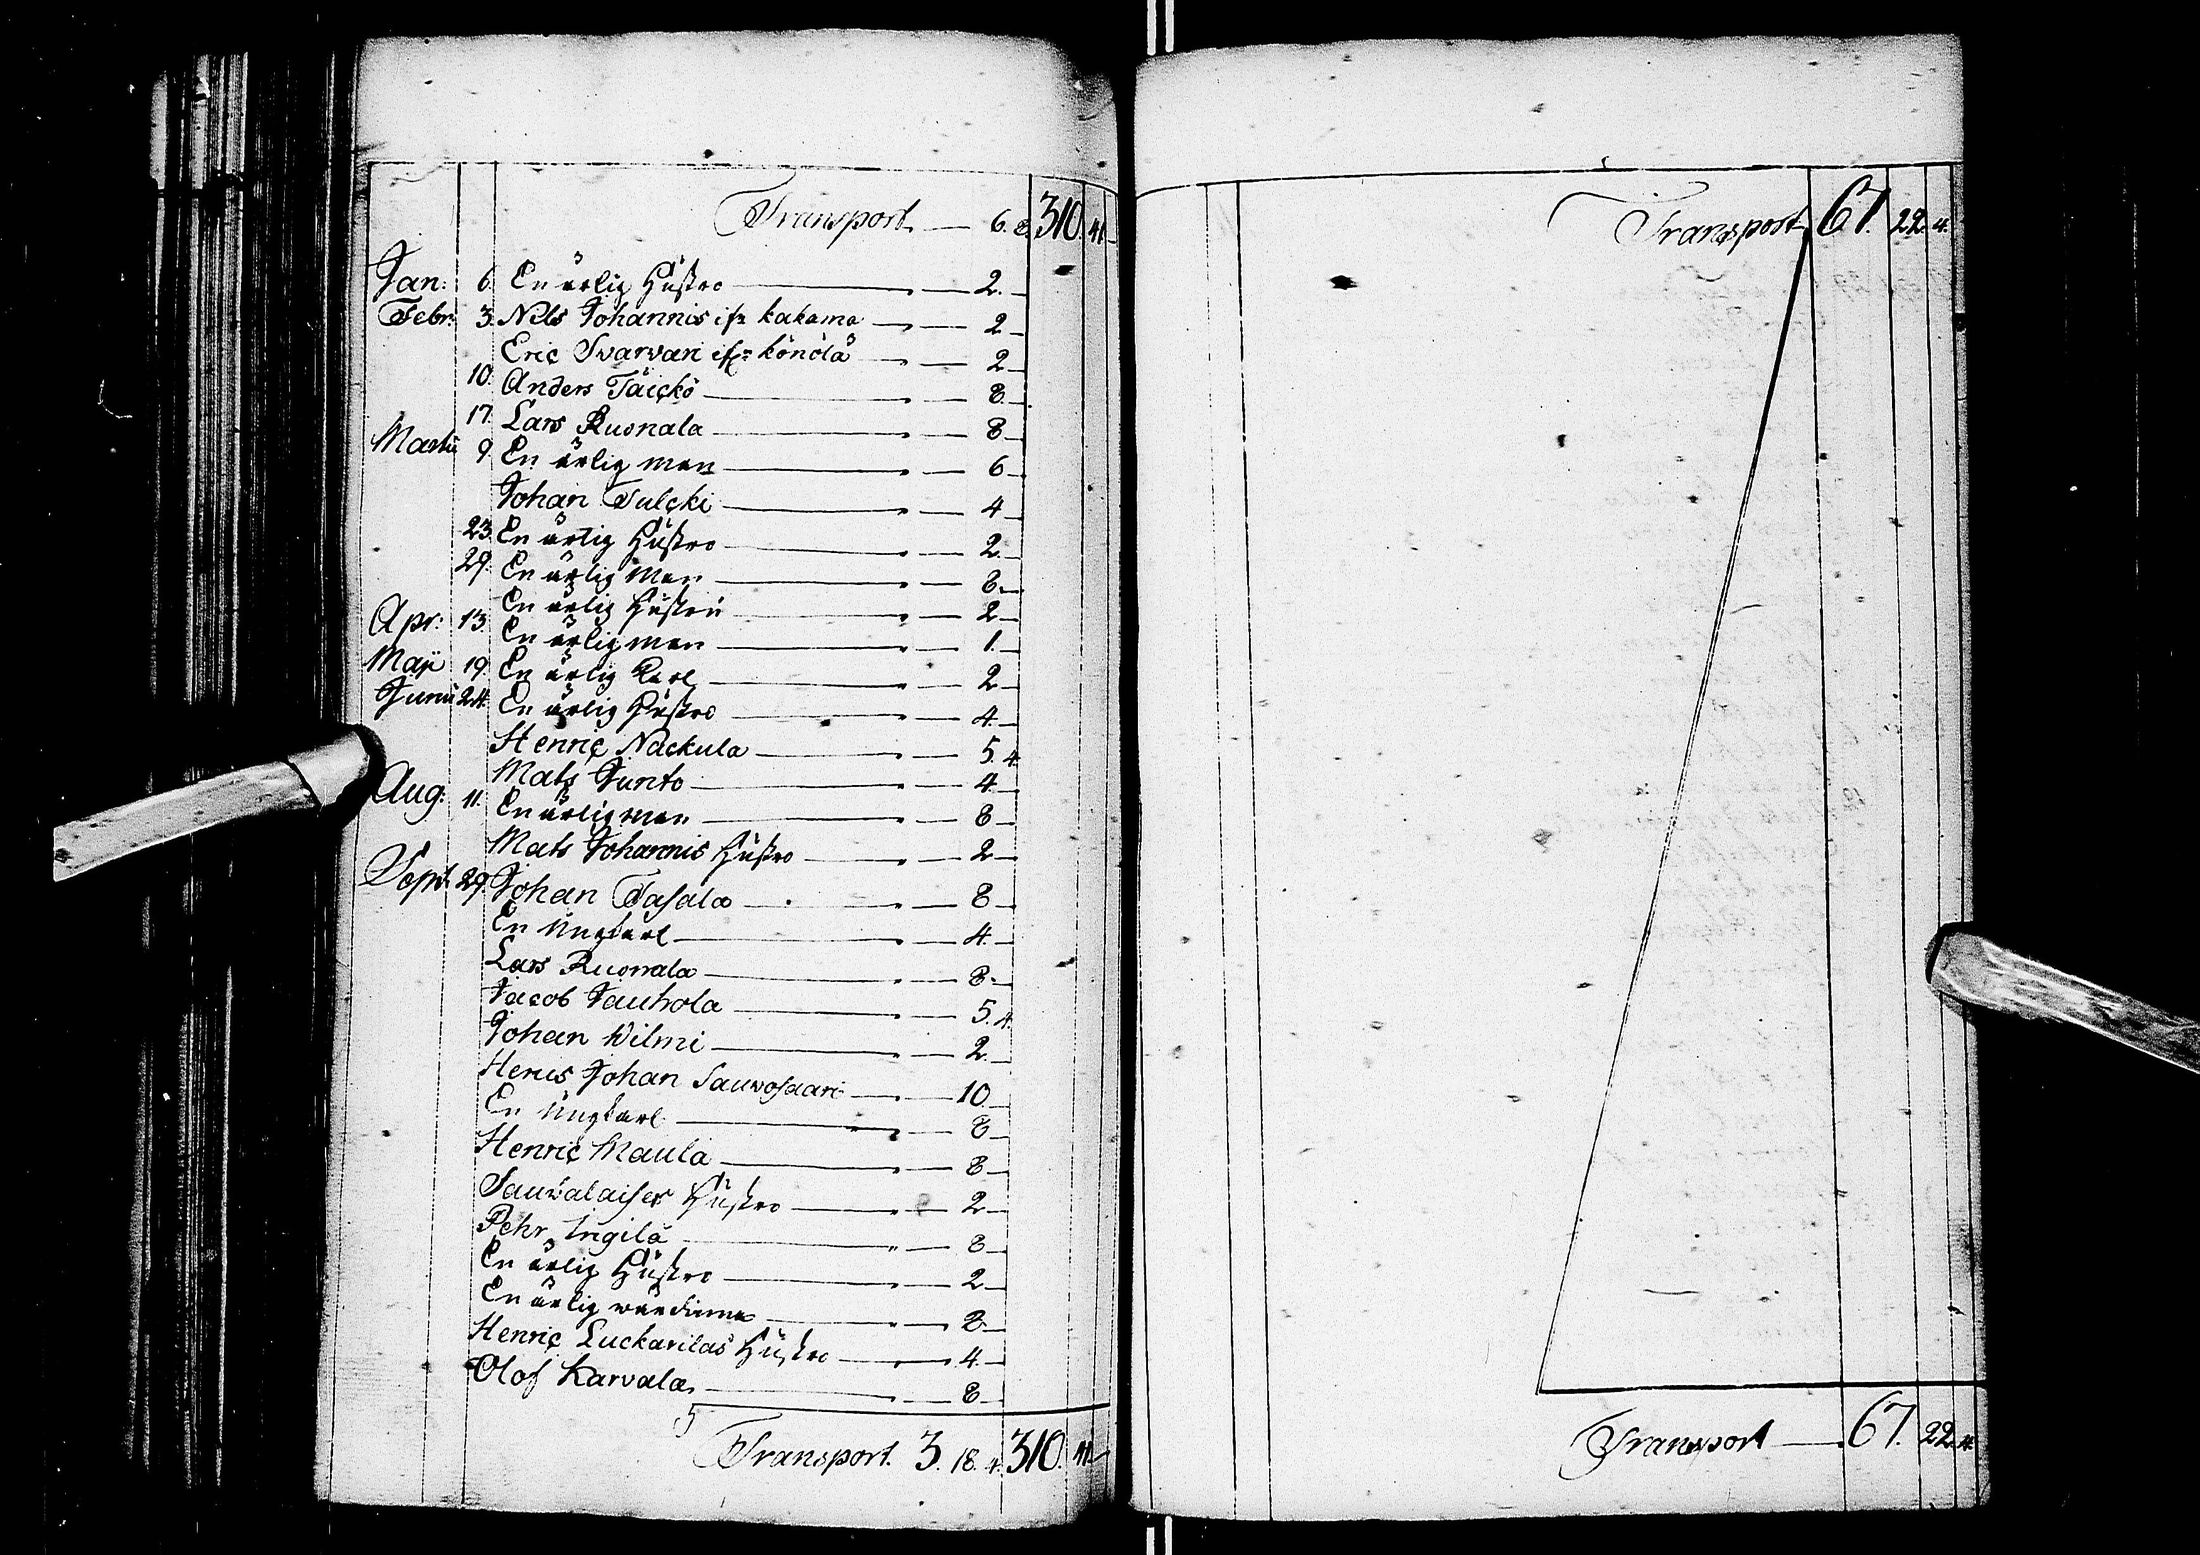 Transport — 6. 8. 310. 41 —
Jan: 6. En ärlig Hustro — 2. —
Febr: 3. Nils Johannis ifr kakama — 2 —
Eric Svarvari ifr: könölä — 2 —
10. Anders Täickö — 8. —
17. Lars Ruonala — 8 —
Martii 9. En ärlig man — 6 —
Johan Tulcki — 4 —
23. En ärlig Hustro — 2. —
29. En ärlig Man — 8. —
En ärlig Hustru — 2 —
Apr: 13. En ärlig man — 1. —
Maji 19. En ärlig Karl — 2 —
Junii 24. En ärlig Hustro — 4. —
Henric Nackula — 5. 4.
Mats Junto — 4. —
Aug: 11. En ärlig man — 8 —
Mats Johannis Hustro — 2 —
Sept: 29. Johan Tasala — 8 —
En Ungkarl — 4. —
Lars Ruonala — 8 —
Jacob Jauhola — 5. 4.
Johan Wilmi — 2. —
Johan Sauvosaari — 10. —
En Ungkarl — 8 —
Henric Maula — 8 —
Hustro — 2 —
Pehr Ingilä — 8 —
En ärlig Hustro — 2 —
En ärlig wärdinna — 8 —
Henric Luckarilas Hustro — 4. —
Olof Karvala — 8 —
Transport. 3. 18. 4. 310. 41 —
Transport 67. 22. 4.
Transport — 67. 22. 4.